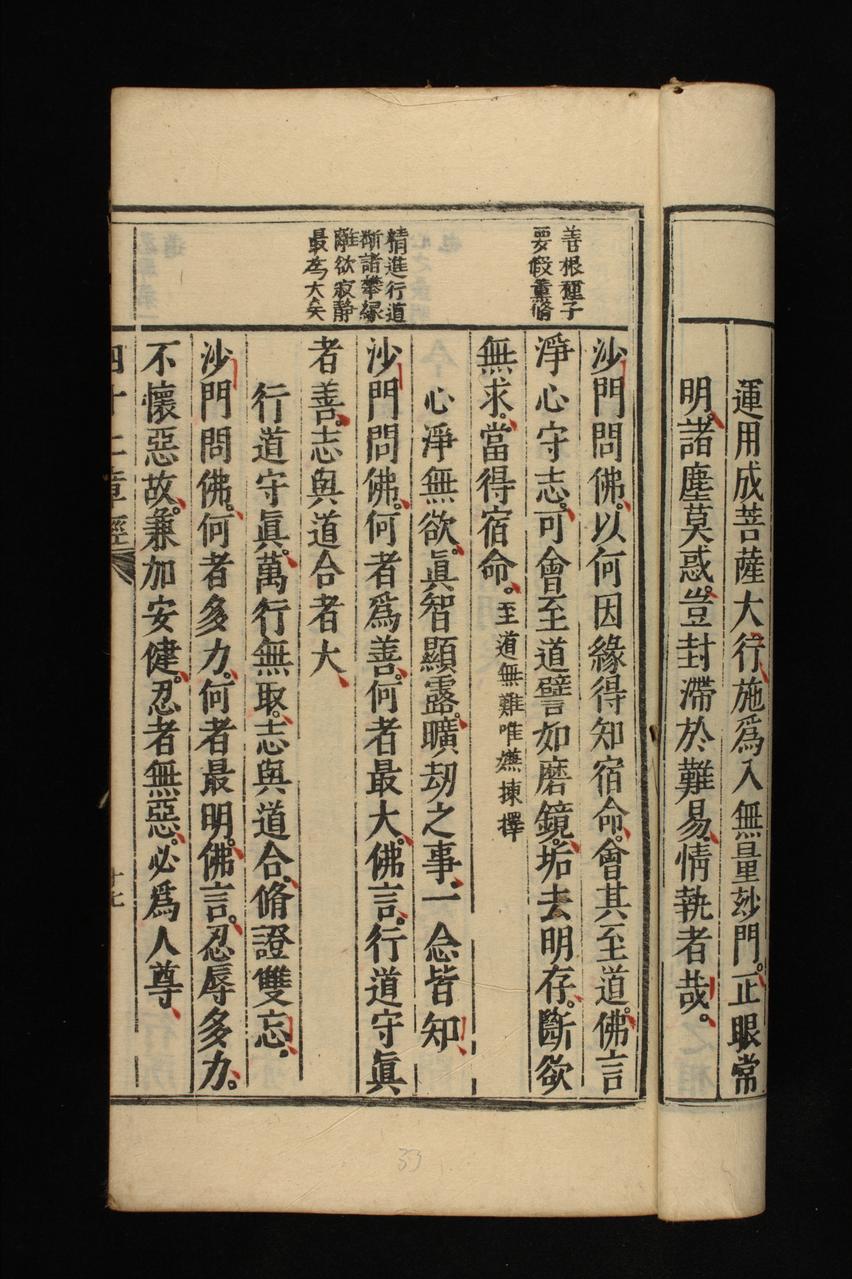 運用成菩薩大行。施爲入無量玅門。正眼常
明。諸塵莫惑。豈封滯於難易。情執者哉。
善根種子
要假薰脩
沙門問佛。以何因緣得知宿命。會其至道。佛言
淨心守志。可會至道譬如磨鏡。垢去明存。斷欲
無求。當得宿命。至道無難唯嫌揀擇
心淨無欲。眞智顯露。曠劫之事。一念皆知
精進行道
斷諸攀緣
離欲寂靜
最爲大矣
沙門問佛。何者爲善。何者最大。佛言。行道守眞
者善。志與道合者大、
行道守眞。萬行無取。志與道合。脩證雙忘。
沙門問佛。何者多力。何者最明。佛言。忍辱多力。
不懷惡故。兼加安健。忍者無惡。必爲人尊、
四十二章經
十七
33